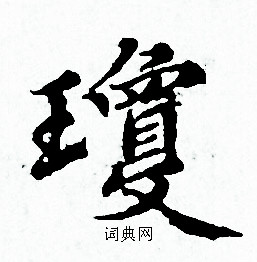 瓊
词典网